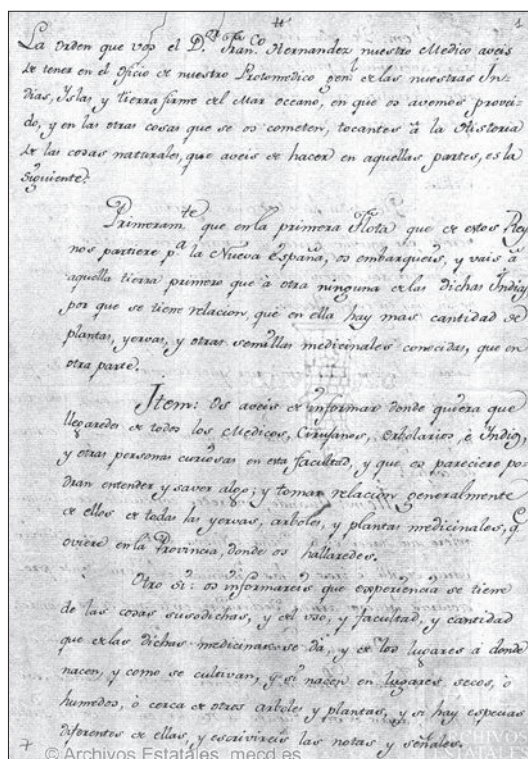 1
La orden que vos el D.or Fran.co Hernandez nuestro Medico aveis
de tener en el Oficio de nuestro Protomedico gen.l de las nuestras In-
dias, Yslas, y tierra firme del Mar oceano, en que os avemos provei-
do, y en las otras cosas que se os cometen, tocantes à la Historia
de las cosas naturales, que aveis de hacer en aquellas partes, es la
siguiente.
Primeram.te que en la primera Flota que de estos Rey-
nos partiere p.a la Nueva España, os embarqueis, y vais à
aquella tierra primero que à otra ninguna de las dichas Indias,
por que se tiene relacion, que en ella hay mas cantidad de
plantas, yervas, y otras semillas medicinales conocidas, que en
otra parte.
Item: Os aveis de informar donde quiera que
llegaredes de todos los Medicos, Cirujanos, Erbolarios, è Indios,
y otras personas curiosas en esta facultad, y que os pareciere po-
dran entender y saver algo; y tomar relacion generalmente
de ellos de todas las yervas, arboles, y plantas medicinales, q.e
oviere en la Provincia, donde os hallaredes.
Otro si: os informareis que experiencia se tiene
de las cosas susodichas, y del uso, y facultad, y cantidad
que de las dichas medicinas se dà, y de los lugares à donde
nacen, y como se cultivan, y si nacen en lugares secos, ò
humedos, ò cerca de otros arboles y plantas, y si hay especias
diferentes de ellas, y escrivireis las notas y señales.
© Archivos Estatales, mecd.es
ARCHIVOS
ESTATALES